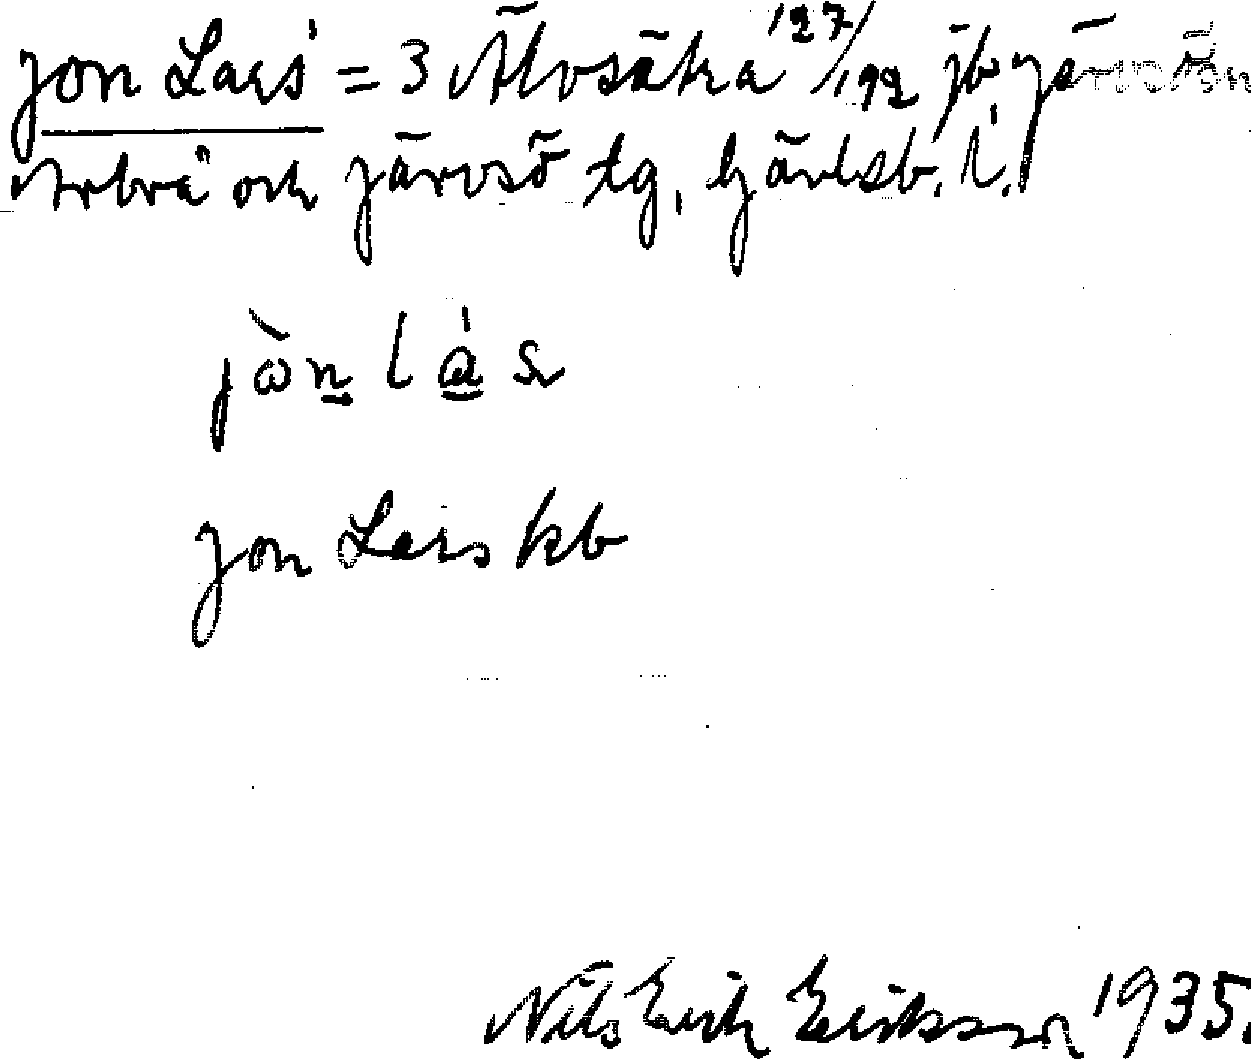 Jon Lars' = 3 Älvsäka 127/192 jb Järvsö sn
Arbrå och Järvsö tg, Gävleb. l.
jòn lás
Jon Lars kb
Nils Erik Eriksson 1935.